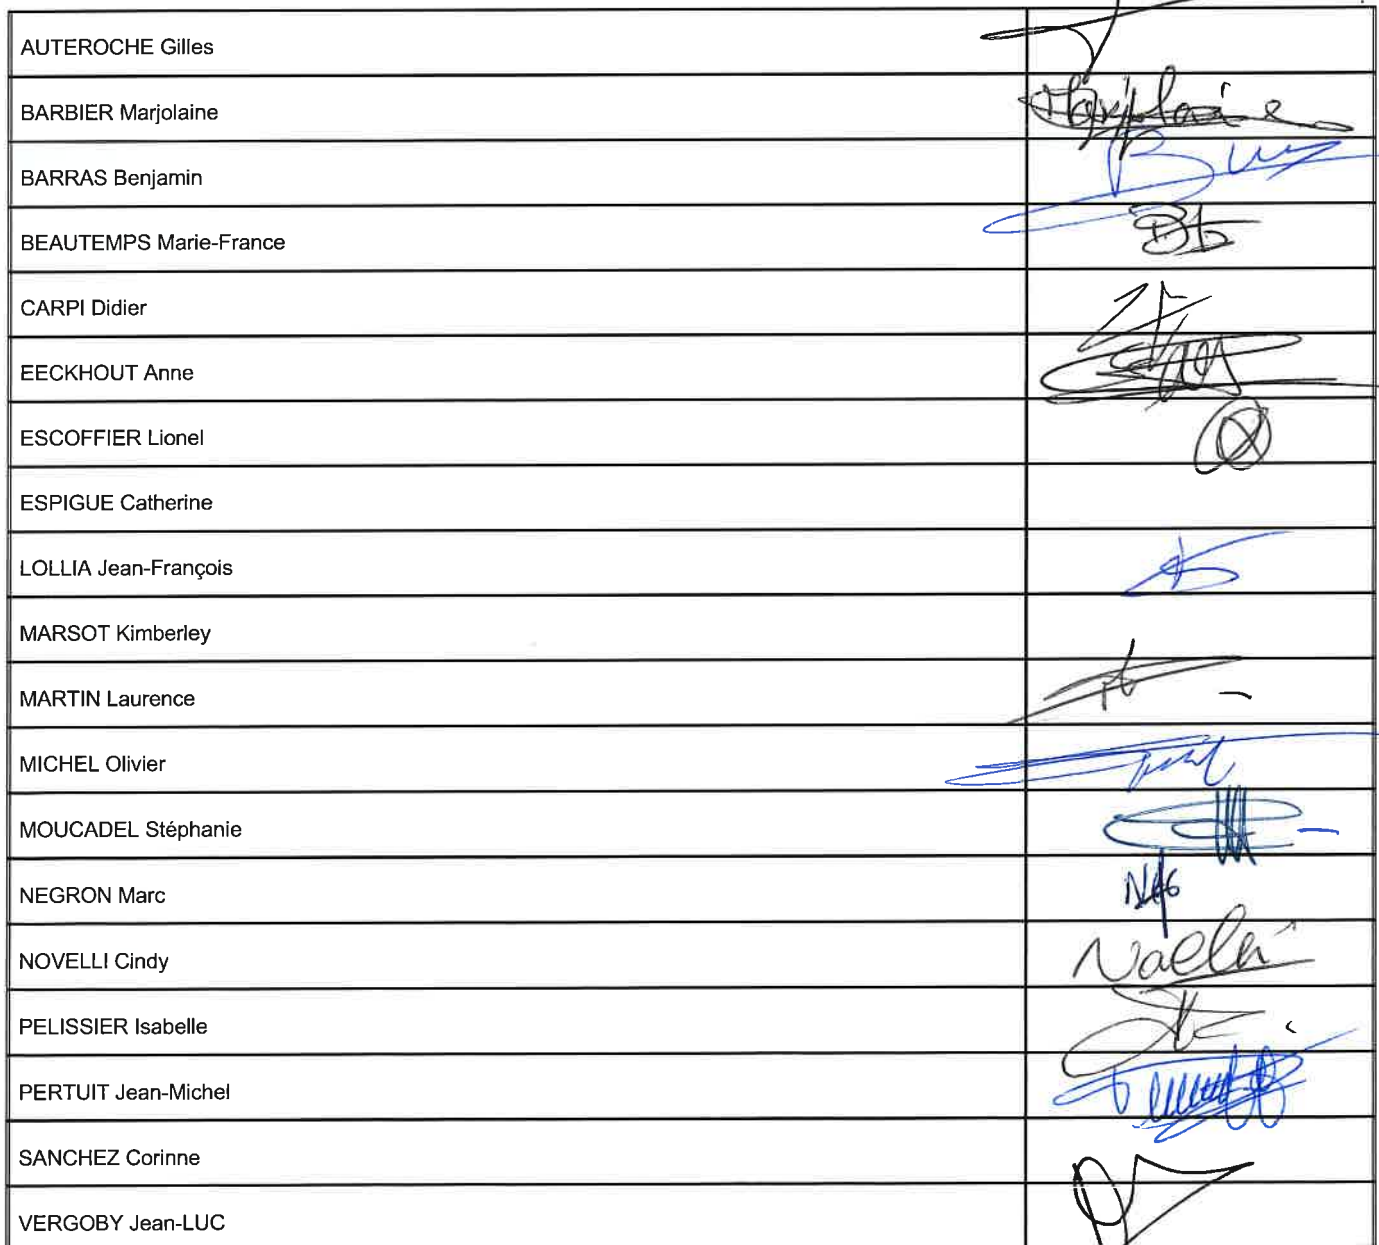 AUTEROCHE Gilles
BARBIER Marjolaine
Marjolaine
BARRAS Benjamin
BEAUTEMPS Marie-France
CARPI Didier
EECKHOUT Anne
ESCOFFIER Lionel
ESPIGUE Catherine
LOLLIA Jean-François
MARSOT Kimberley
MARTIN Laurence
MICHEL Olivier
MOUCADEL Stéphanie
NEGRON Marc
NOVELLI Cindy
PELISSIER Isabelle
PERTUIT Jean-Michel
SANCHEZ Corinne
VERGOBY Jean-LUC